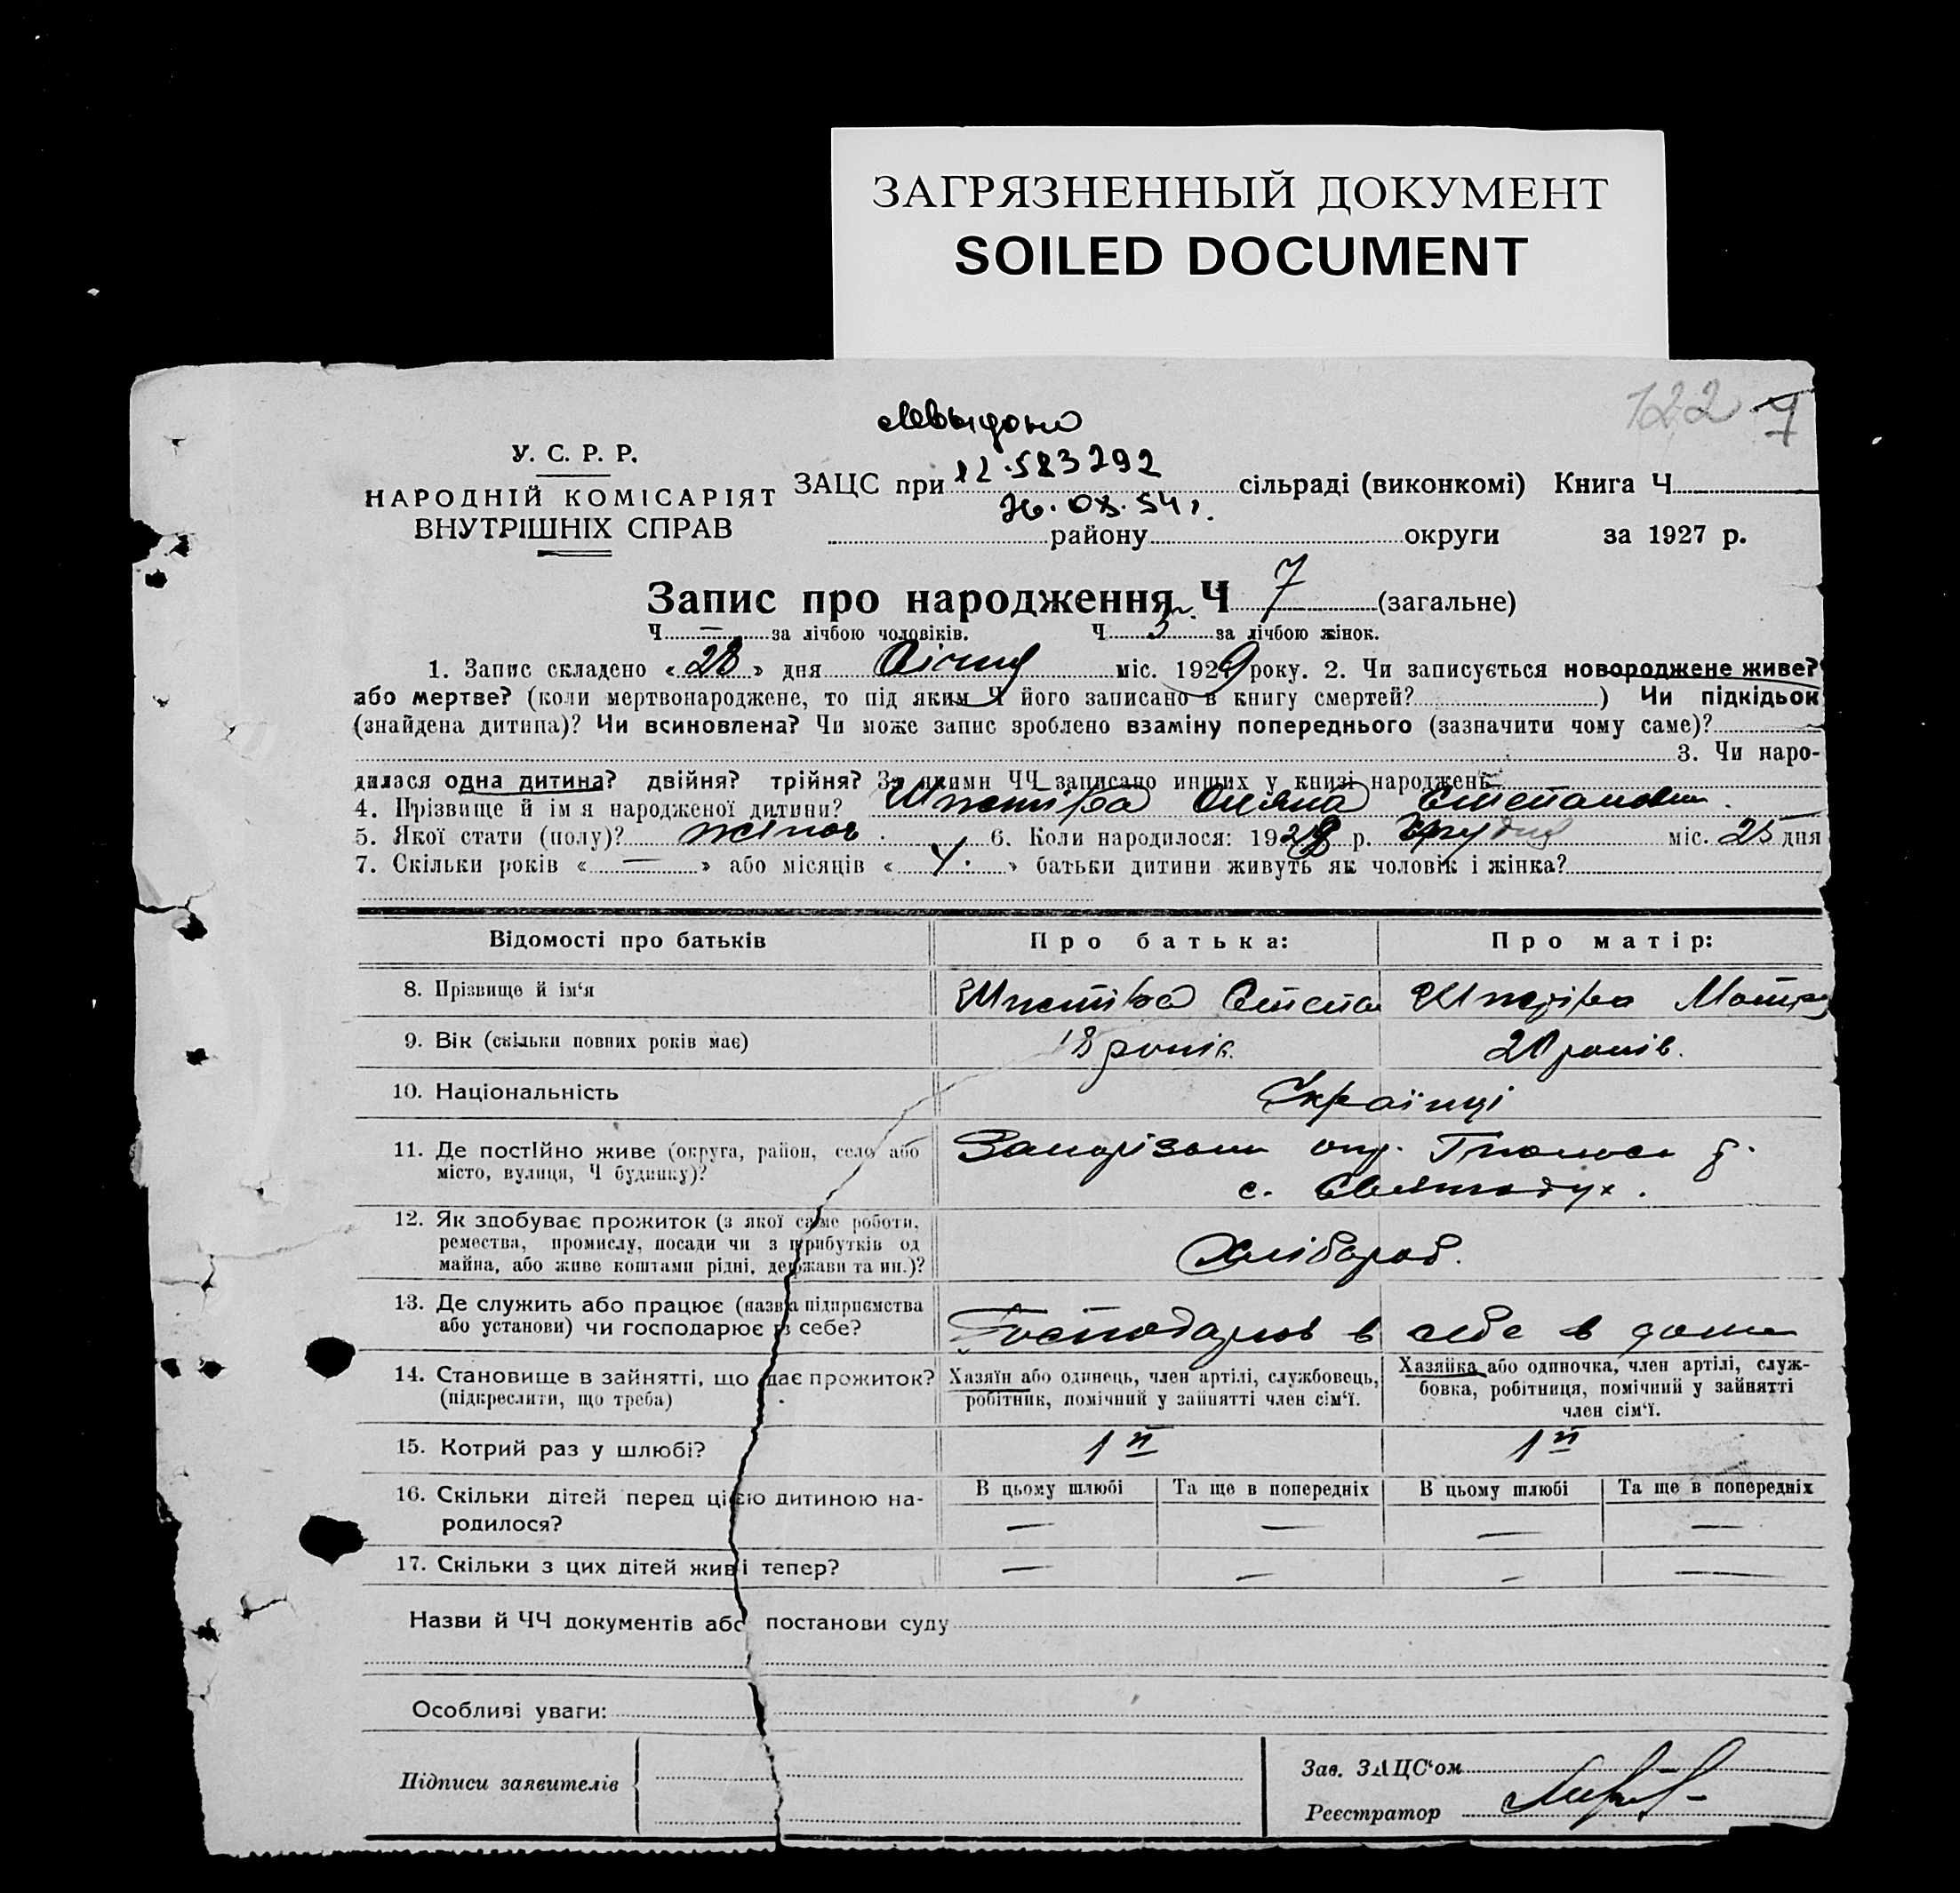 ЗАГРЯЗНЕННЫЙ ДОКУМЕНТ
SOILED DOCUMENT
122 7
У. С. Р. Р.
НАРОДНІЙ КОМІСАРІЯТ
ВНУТРІШНІХ СПРАВ
12.583292
ЗАЦС при сільраді (виконкомі) Книга Ч
району округи за 1927 р.
Запис про народження Ч 7 (загальне)
Ч — за лічбою чоловіків. Ч за лічбою жінок.
1. Запис складено «28» дня Січня міс. 1929 року. 2. Чи записується новороджене живе?
або мертве? (коли мертвонароджене, то під яким Ч його записано в книгу смертей? ) Чи підкідьок
(знайдена дитина)? Чи всиновлена? Чи може запис зроблено взаміну попереднього (зазначити чому саме)?
3. Чи наро-
дилася одна дитина? двійня? трійня? За якими ЧЧ записано инших у книзі народжень
4. Прізвище й ім я народженої дитини? Степановна.
5. Якої стати (полу)? жіноч. 6. Коли народилося: 1928 р. Грудня міс. 25 дня
7. Скільки років « — » або місяців « » батьки дитини живуть як чоловік і жінка?
Відомості про батьків Про батька: Про матір:
8. Прізвище й ім‘я Степа
9. Вік (скільки повних років має) 18 років. 20 років.
10. Національність Українці
11. Де постійно живе (округа, район, село або
місто, вулиця, Ч будинку)?
с. Святодух.
12. Як здобуває прожиток (з якої саме роботи,
ремества, промислу, посади чи з прибутків од
майна, або живе коштами рідні, держави та ин.)?
Хлібороб.
13. Де служить або працює (назва підприємства
або установи) чи господарює в себе? в себе в дома
14. Становище в зайнятті, що дає прожиток?
(підкреслити, що треба)
Хазяїн або одинець, член артілі, службовець,
робітник, помічний у зайнятті член сім‘ї.
Хазяйка або одиночка, член артілі, служ-
бовка, робітниця, помічний у зайнятті
член сім‘ї.
15. Котрий раз у шлюбі? 1й 1й
16. Скільки дітей перед цією дитиною на-
родилося?
В цьому шлюбі Та ще в попередніх В цьому шлюбі Та ще в попередніх
— — — —
17. Скільки з цих дітей живі тепер? — — — —
Назви й ЧЧ документів або постанови суду
Особливі уваги:
Підписи заявителів
Зав. ЗАЦС‘ом
Реєстратор